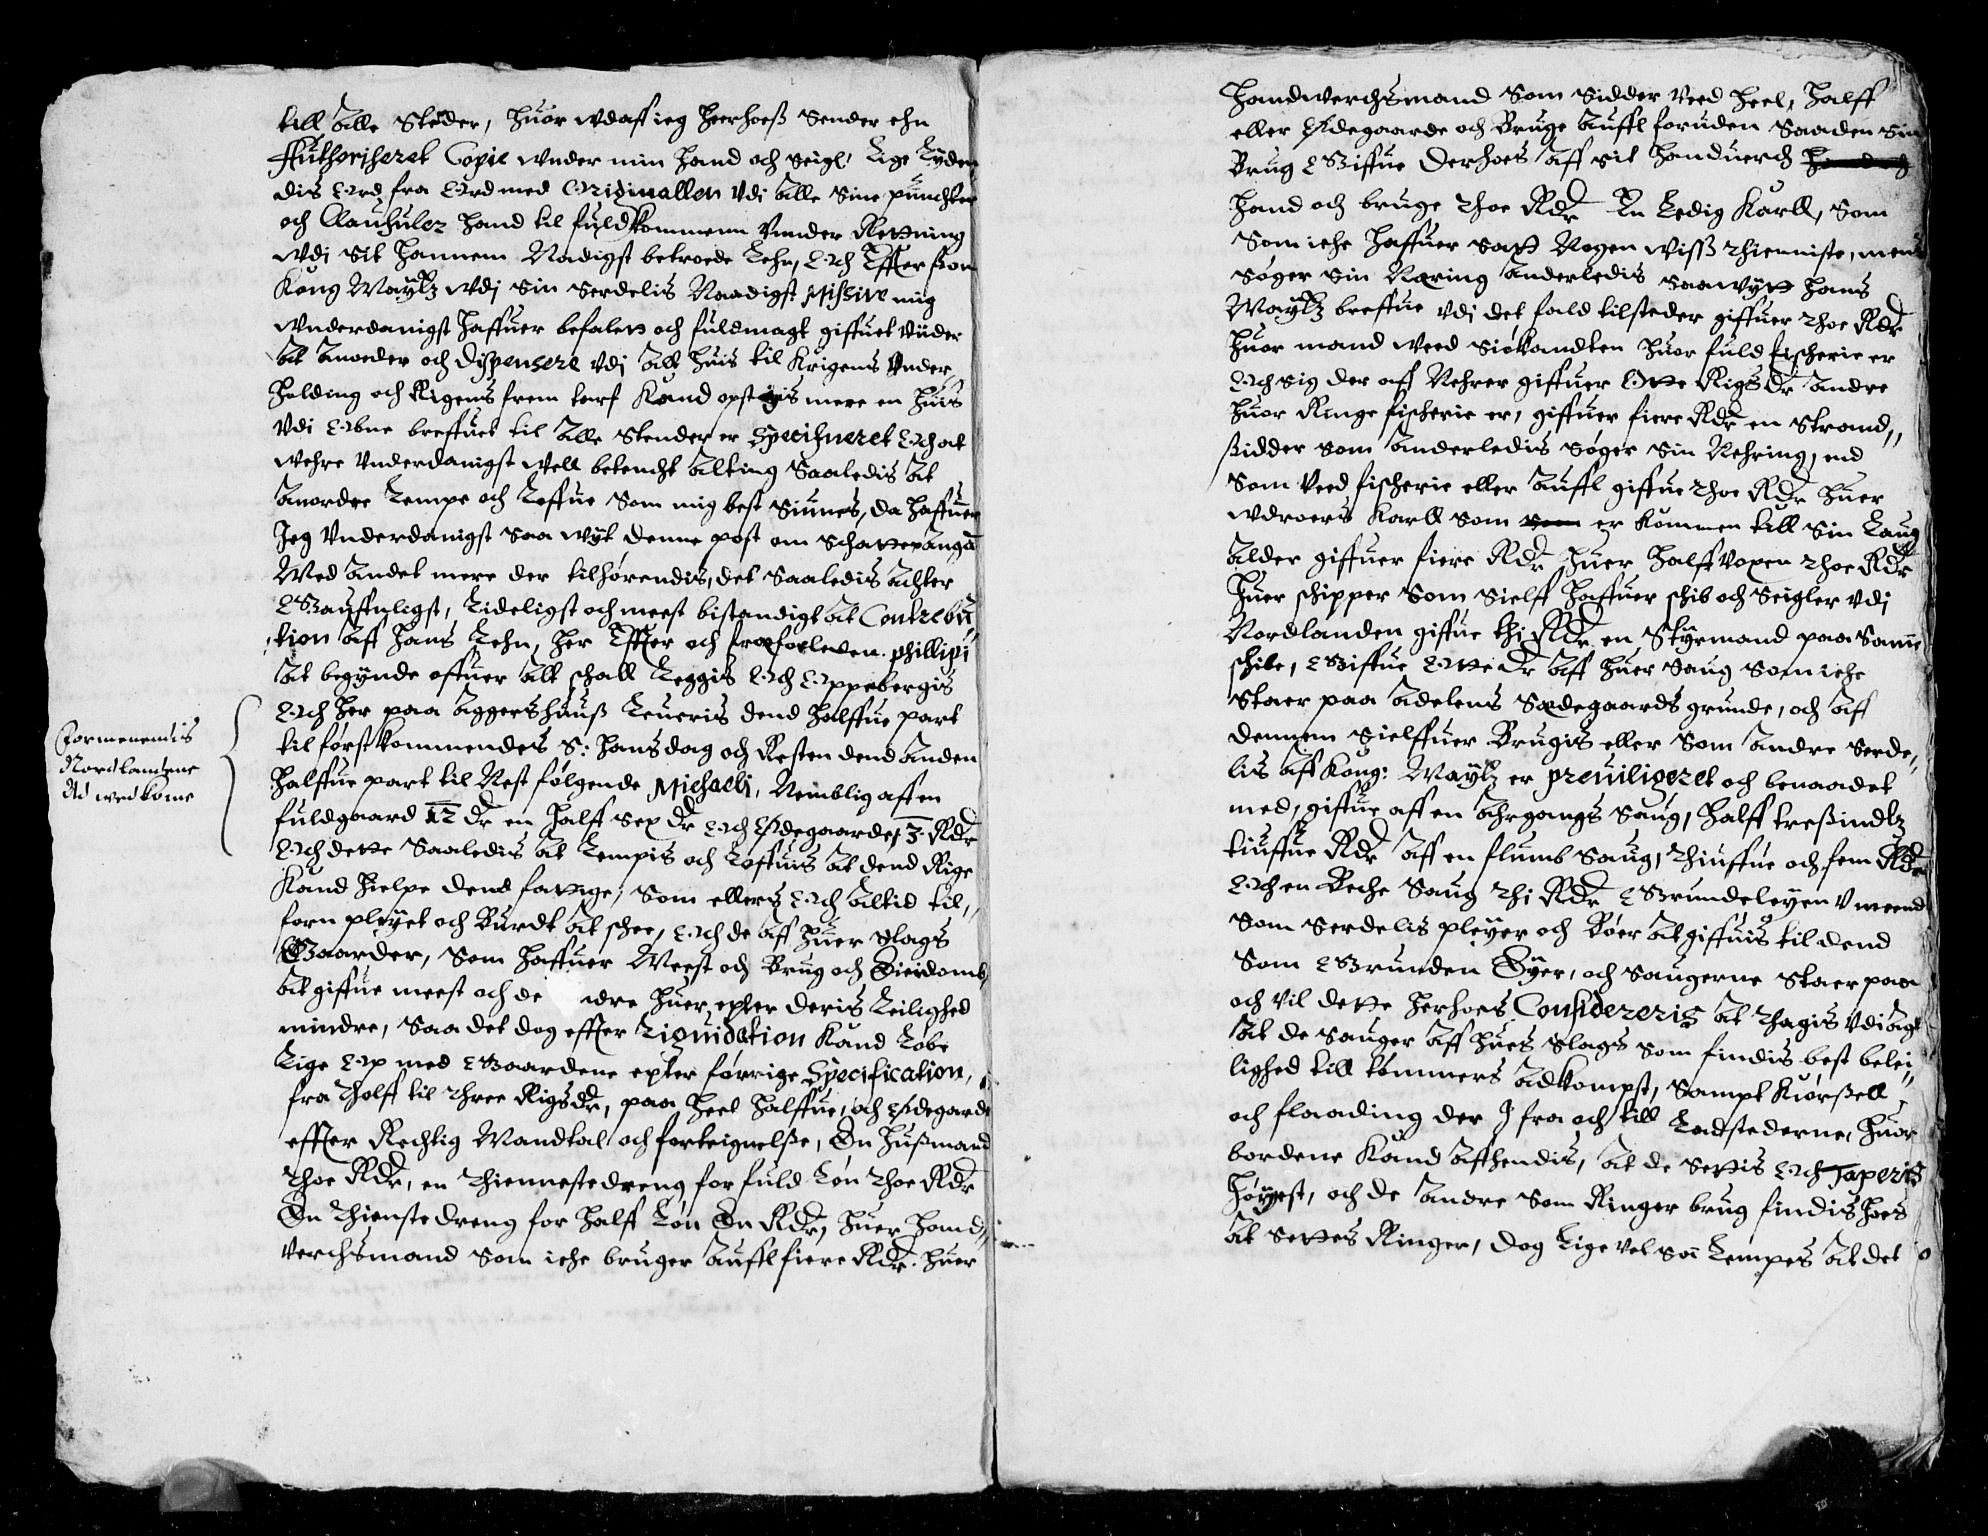 till alle Steder, huor wdaff ieg herhoeß Sender ehn
Authoriseret Copie wnder min hand och Seigl. Lige Lyden
dis Ord fra Ord med Originallen vdi alle Sine punchter
och Clausuler hand til fuldkommenn vnnder Rettning
wdi Sit hannem Nadigst betroede Lehn, Och Effter som
Kong Maytz wdj Sin Serdelis Naadigst Missive mig
wnderdanigst haffuer befalett och fuldmagt giffuet vnder
at anordne och dispensere vdj alt huis til Krigens Vnder
holding och Rigens frem tarf Kand opstigis mere en huis
vdi Obne breffuet til alle Stender er Specificeret Och at
wehre vnderdanigst well betencht alting Saaledis at
anordne Lempe och Loffue som mig best Siunes, da haffuer
Jeg Vnderdanigst Saa wyt denne post om Schattepaaga
Med andet mere der tilhørendis, det Saaledis achter
Gauffnligst, Lideligst och meest bistandigt at Contrebu
tion aff hans Lehn, her Effter och fra forleden phillipi
at begynde offuer alt schall Leggis Och Oppebergis
Och her paa Aggershuuß Leueris dend halffue part
til først kommendes S: Hansdag och Resten dend anden
halffue part til Nest følgende Michaelj, Nemblig aff en
fuldgaard 12 dr en halff Sex dr Och Ødegaarder 3 Rdr
Och dette Saaledis at Lempis och Loffuis at dend Rige
Kand hielpe dend fattige, Som ellers Och altid til,,
forn pleyet och Burdt at schee, Och de aff huer Slags
Gaarder, Som haffuer Meest och Brug och Eiendomb,
at giffue meest och de andre huer epter deris Leilighed
mindre, Saa det dog effter Liquidation Kand Løbe
Lige Op med Gaardene epter forrige Specification,
fra Tholff til Three Rigsdr, paa heel halffue, och Ødegarde
effter Rechtig Mandtal och forteignelße, En hußmand
Thoe Rdr, en Thiennestedreng for fuld Løn Thoe Rdr
En Thienstedreng for halff Løn En Rdr, huer hand,,
verchsmand Som iche bruger auffl fiere Rdr. huer
Formenendis
Nordlandene
Ad wedkome
Handwerchsmand Som Sidder Veed heel, halff
eller Ødegaarde och Bruge auffl foruden Saaden Sin
Brug Giffue derhoes aff sit handuerch
hand och bruge Thoe Rdr En Ledig Karll, Som
Som iche haffuer Satt Nogen wiss Thienniste, mens
Søger Sin Næring anderledis Saawytt hans
Maytz breffue vdj det fald tilsteder giffuer Thoe Rdr
huor mand weed Siökandten huor fuld fischerie er
Och Sig der aff Nehrer giffuer Otte Rigsdr andre
huor Ringe fischerie er, giffuer fiere Rdr en Strand,,
ßidder Som anderledis Søger Sin Nehring, end
Som veed fischerie eller auffl giffue Thoe Rdr huer
wdroers Karll Som er Kommen till Sin Laug
alder giffuer fiere Rdr huer halffvoxen Thoe Rdr
Huer Schipper Som Sielff haffuer Schib och Seigler vdj
Nordlanden giffue thj Rdr en Styrmand paa Samme
Schibe, Giffue Otte dr aff huer Saug Som iche
Staer paa adelens Sædegaards grunde, och aff
dennem Sielffuer Brugis eller Som andre Serde,,
lis aff Kong: Maytz er preuiligeret och benaadet
med, giffue aff en ahrgangs Saug, halff treßindtz
tiuffue Rdr aff en flumb Saug, Thiuffue och fem Rdr
Och en Beche Saug Thi Rdr Grundeleyen vmeend
Som Serdelis pleyer och Bøer at giffuis til dend
Som Grunden Eyer, och Saugerne Staer paa
och vil dette herhoes Considereris at Thagis vdi agt
at de Sauger aff huer Slags Som findis best belei,,
lighed till tömmers adkompst, Sampt Kiörßell,
och flaading der I fra och till Ladstederne, huor
bordene Kand affhendis, at de Settis Och Taxeris
høyest, och de andre Som Ringer brug findis hoes
at Settes Ringer, dog Lige vel Saa Lempes at det